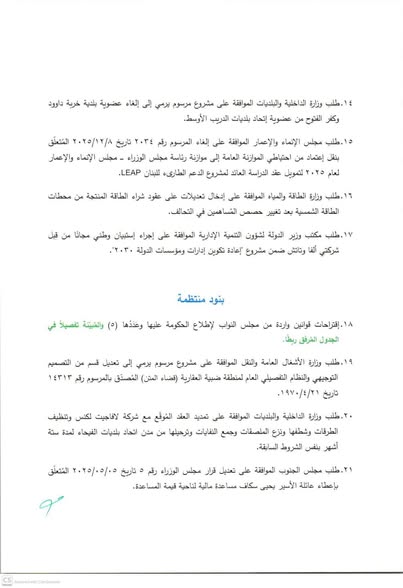 ١٤.طلب وزارة الداخلية والبلديات الموافقة على مشروع مرسوم يرمي إلى إلغاء عضوية بلدية خربة داوود
وكفر الفتوح من عضوية إتحاد بلديات الدريب الأوسط.
١٥.طلب مجلس الإنماء والإعمار الموافقة على إلغاء المرسوم رقم ٢٠٣٤ تاريخ ٢٠٢٥/١٢/٨ المُتعلّق
بنقل إعتماد من احتياطي الموازنة العامة إلى موازنة رئاسة مجلس الوزراء – مجلس الإنماء والإعمار
لعام ٢٠٢٥ لتمويل عقد الدراسة العائد لمشروع الدعم الطارىء للبنان LEAP.
١٦.طلب وزارة الطاقة والمياه الموافقة على إدخال تعديلات على عقود شراء الطاقة المنتجة من محطات
الطاقة الشمسية بعد تغيير حصص المُساهمين في التحالف.
١٧.طلب مكتب وزير الدولة لشؤون التنمية الإدارية الموافقة على إجراء إستبيان وطني مجانًا من قبل
شركتي ألفا وتاتش ضمن مشروع "إعادة تكوين إدارات ومؤسسات الدولة ٢٠٣٠".
بنود منتظمة
١٨.إقتراحات قوانين واردة من مجلس النواب لإطلاع الحكومة عليها وعددها (٥) والمُبيّنة تفصيلاً في
الجدول المُرفق ربطًا.
١٩.طلب وزارة الأشغال العامة والنقل الموافقة على مشروع مرسوم يرمي إلى تعديل قسم من التصميم
التوجيهي والنظام التفصيلي العام لمنطقة ضبية العقارية (قضاء المتن) المُصدّق بالمرسوم رقم ١٤٣١٣
تاريخ ١٩٧٠/٤/٢١.
٢٠.طلب وزارة الداخلية والبلديات الموافقة على تمديد العقد المُوقّع مع شركة لافاجيت لكنس وتنظيف
الطرقات وشطفها ونزع الملصقات وجمع النفايات وترحيلها من مدن اتحاد بلديات الفيحاء لمدة ستة
أشهر بنفس الشروط السابقة.
٢١.طلب مجلس الجنوب الموافقة على تعديل قرار مجلس الوزراء رقم ٥ تاريخ ٢٠٢٥/٠٥/٠٥ المُتعلّق
بإعطاء عائلة الأسير يحيى سكاف مساعدة مالية لناحية قيمة المساعدة.
CS